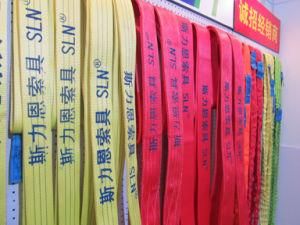 诚招经销商
斯力恩索具 SLN®
斯力恩索具 SLN®
斯力恩索具 SLN®
斯力恩索具 SLN®
斯力恩索具 SLN
斯力恩索具 SLN®